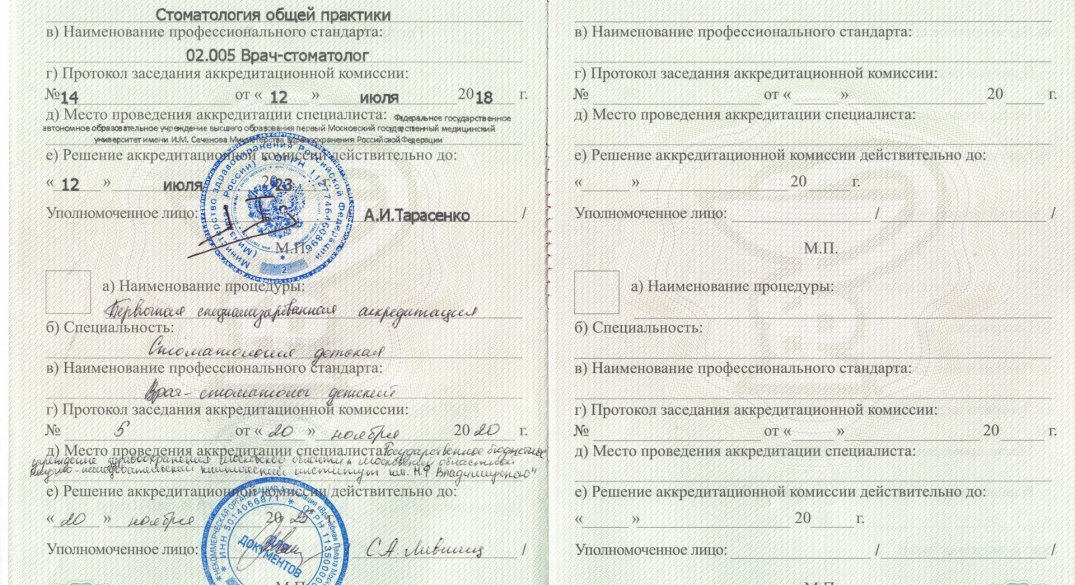 Стоматология общей практики
в) Наименование профессионального стандарта:
02.005 Врач-стоматолог
г) Протокол заседания аккредитационной комиссии:
№14 от « 12 » июля 2018 г.
д) Место проведения аккредитации специалиста: Федеральное государственное
автономное образовательное учреждение высшего образования первый Московский государственный медицинский
университет имени И.М. Сеченова Министерства здравоохранения Российской Федерации
е) Решение аккредитационной комиссии действительно до:
« 12 » июля 2023 г.
Уполномоченное лицо: А.И.Тарасенко /
М.П.
а) Наименование процедуры:
Первичная специализированная аккредитация
б) Специальность:
Стоматология детская
в) Наименование профессионального стандарта:
Врач-стоматолог детский
г) Протокол заседания аккредитационной комиссии:
№ 5 от « 20 » ноября 2020 г.
д) Место проведения аккредитации специалиста: Государственное бюджетное
учреждение здравоохранения Московской области Московский областной
научно-исследовательский клинический институт им. М.Ф. Владимирского"
е) Решение аккредитационной комиссии действительно до:
« 20 » ноября 2025 г.
Уполномоченное лицо: С.А. Лившиц /
М.П.
Министерство здравоохранения Российской Федерации
(Минздрав России)
ОГРН 1127746460896
2
НЕКОММЕРЧЕСКАЯ ОРГАНИЗАЦИЯ
ИНН 5014066871
ДОКУМЕНТОВ
в) Наименование профессионального стандарта:
г) Протокол заседания аккредитационной комиссии:
№ от « » 20 г.
д) Место проведения аккредитации специалиста:
е) Решение аккредитационной комиссии действительно до:
« » 20 г.
Уполномоченное лицо: / /
М.П.
а) Наименование процедуры:
б) Специальность:
в) Наименование профессионального стандарта:
г) Протокол заседания аккредитационной комиссии:
№ от « » 20 г.
д) Место проведения аккредитации специалиста:
е) Решение аккредитационной комиссии действительно до:
« » 20 г.
Уполномоченное лицо: / /
М.П.